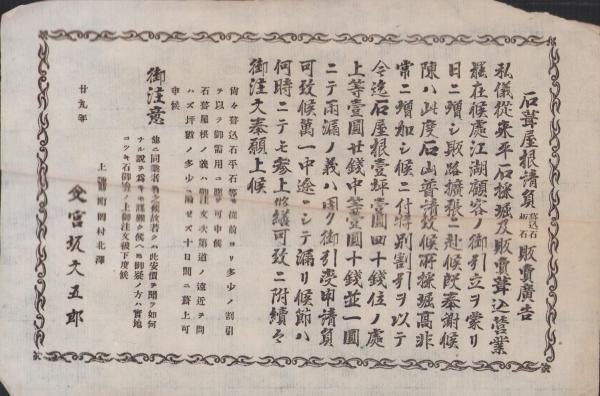 石葺屋根請負 葺込石 板石 販賣廣告
私儀従来平石採堀及販賣葺込営業
罷在候處江湖顧客ノ御引立ヲ蒙リ
日ニ増シ販路擴張ニ赴候段奉謝候
陳ハ此度石山普請致候所採堀高非
常ニ増加シ候ニ付特別割引ヲ以テ
今迄石屋根壹坪壹圓四十錢位ノ處
上等壹圓廿錢中等壹圓十錢並一圓
ニテ雨漏ノ義ハ固ク御引受申請負
可致候萬一中途ニシテ漏リ候節ハ
何時ニテモ参上修繕可致ニ附續々
御注文奉願上候
尚々葺込石平石等モ従前ヨリ多少ノ割引
ヲ以テ御需用ニ應可申候
石葺屋根ノ義ハ御注文次第道ノ遠近ヲ問
ハズ坪数ノ多少ニ關セズ十日間ニ葺上可
申候
御注意
他ニ同業者有之候故若クハ此安價ヲ聞テ如何
ナル説ヲ為スモ難斗候ヘバ御疑ノ方ハ實地
ニツキ石御覧ノ上御注文被下度候
廿九年
上諏訪町岡村北澤
宮坂文五郎